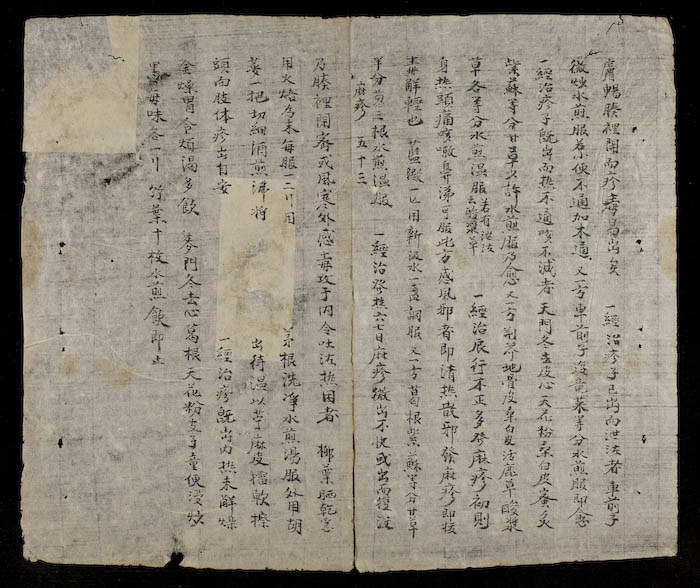 膚暢腠裡開而疹毒易出矣 一經治疹子已出而泄泻者 車前子
微炒水煎服若小便不通加木通 又一方車前子 菜等分水煎服即愈
一經治疹子既出而热不通咳不減者 天門冬去皮心 天花粉 桑白皮蜜炙
紫蘇等分 甘草少許水煎服乃愈 又一方荆芥 地骨皮 桑白皮 活鹿草 酸漿
草各等分水煎温服 若有泄泻去酸漿草 一經治辰行不正多發麻疹初則
身热頭痛咳嗽鼻涕可服此方感風邪者即清热散邪發麻疹即按
毒解輕也 藍澱一匕用新汲水一盞調服 又一方葛根 紫蘇等分 甘草
半分 三根水煎温服 一經治發热六七日麻疹微出不快或出而復没
麻疹 五十三
乃腠裡閉齋或風寒外感毒攻于内令吐泻热困者 柳葉晒乾
用火焙為末每服一二 用 茅根洗淨水煎湯服外用胡
荽一把切細酒煎沸将 出待温以苧麻皮擂軟擦
頭面肢体疹出自安 一經治疹既出内热未解燥
金燥胃令煩渴多飲 麥門冬去心 葛根 天花粉 支子童便浸炒
每味各一 竹葉十枚水煎飲即止